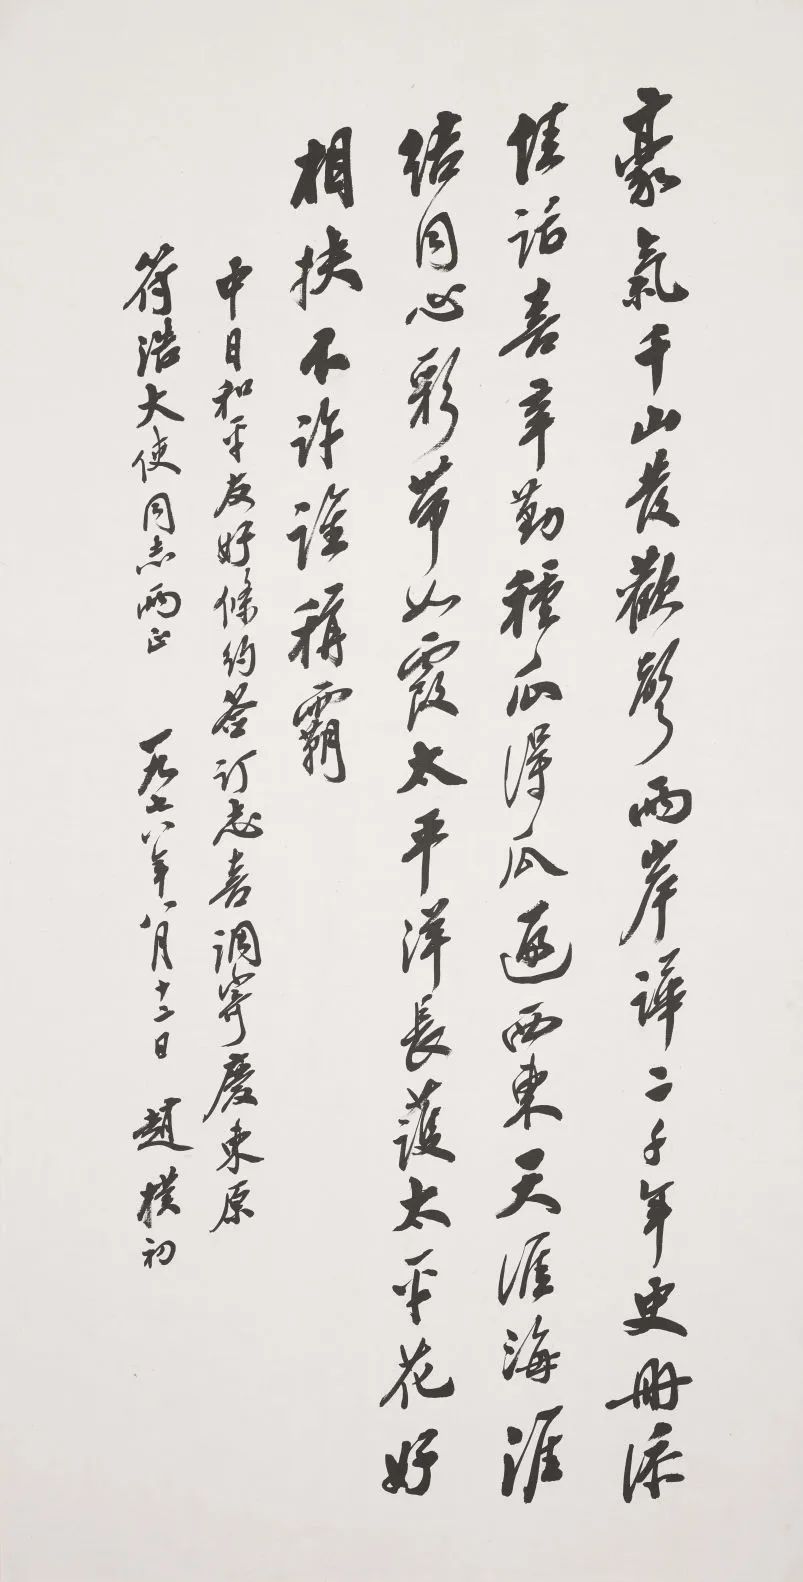 豪氣千山發歡聲兩岸譁二千年史冊添
佳話喜辛勤種瓜得瓜遍西東天涯海涯
結同心彩帶如霞太平洋長護太平花好
相扶不許誰稱霸
中日和平友好條約簽訂志喜調寄慶東原
符浩大使同志兩正 一九七八年八月十二日 趙樸初